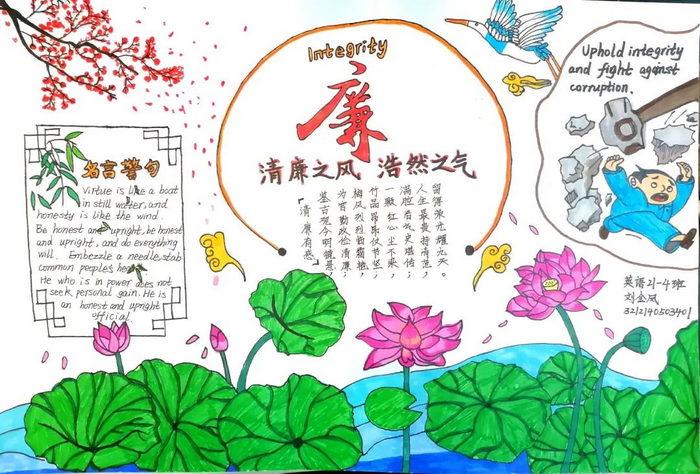 Integrity
廉
清廉之风 浩然之气
「清廉有感」
鉴古观今明镜悬,
为官勤政俭清廉;
梅风烈烈霜
竹品昂昂节坚;
一颗红心尘不
满腔
人生最持清
留得光耀九天。
Uphold integrity
and fight against
corruption.
名言警句
Virtue is like a boat
in still water, and
honesty is like the wind.
Be honest and upright, be honest
and upright, and do everything
will. Embezzle a needle, stab
common people's
He who is in power does not
seek personal gain. He is
an honest and upright
official.
英语21-4班
刘金凤
3212140503401